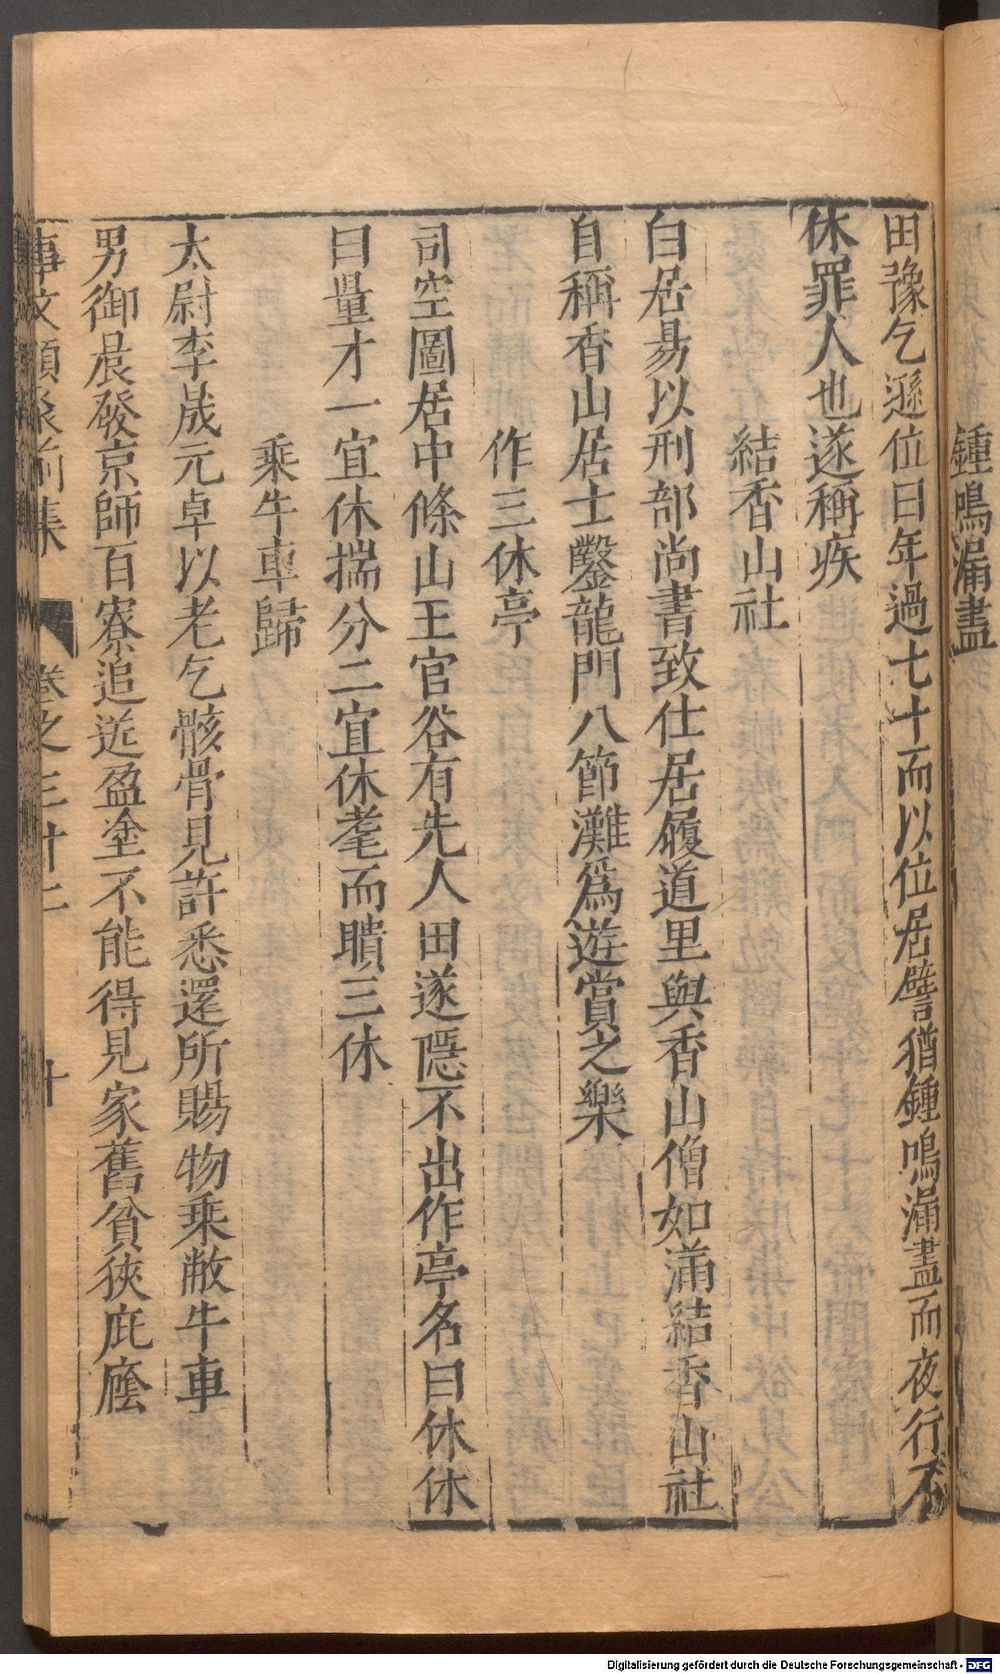 鍾鳴漏盡
田豫乞遜位曰年過七十而以位居譬猶鍾鳴漏盡而夜行不
休罪人也遂稱疾
結香山社
白居易以刑部尚書致仕居履道里與香山僧如滿結香山社
自稱香山居士鑿龍門八節灘爲遊賞之樂
作三休亭
司空圖居中條山王官谷有先人田遂隱不出作亭名曰休休
曰量才一宜休揣分二宜休耄而聵三休
乘牛車歸
太尉李晟元卓以老乞骸骨見許悉還所賜物乘敝牛車
男御晨發京師百寮追送盈塗不能得見家舊貧狹庇廕
事文類聚前集 卷之三十二 十
Digitalisierung gefördert durch die Deutsche Forschungsgemeinschaft - DFG